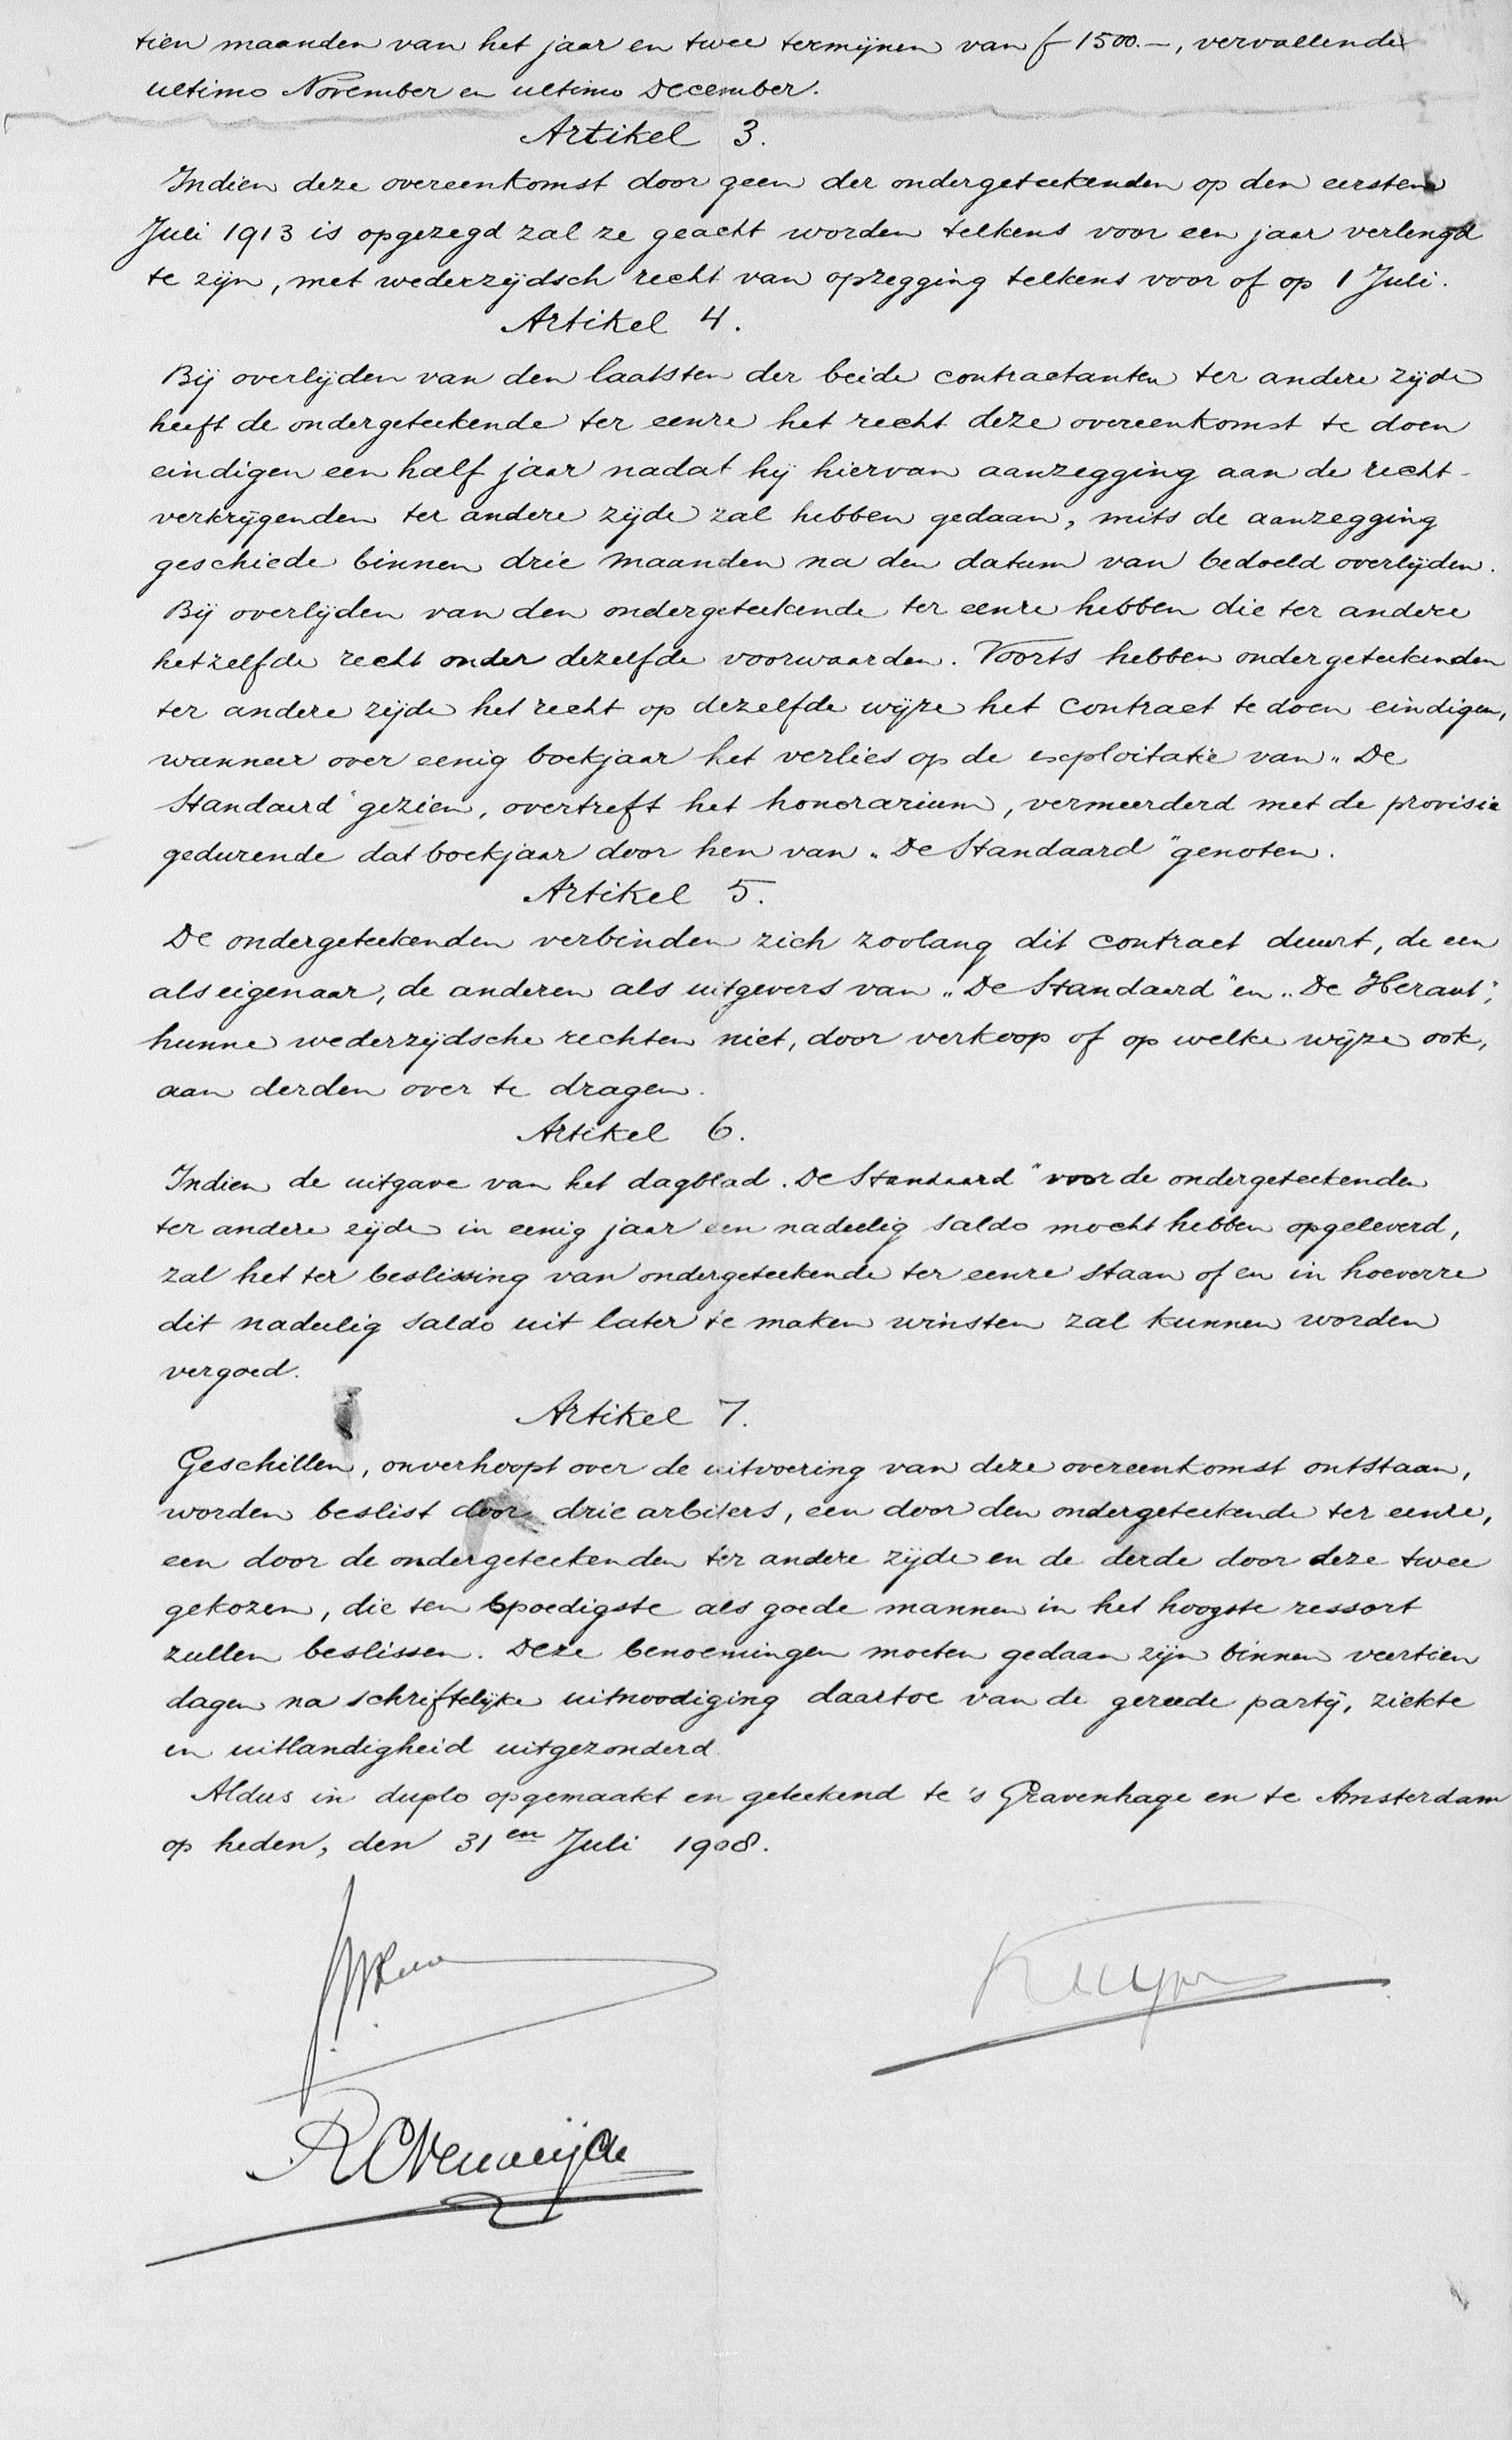 tien maanden van het jaar en twee termijnen van f 1500.-, vervallende
ultimo November en ultimo December.
Artikel 3.
Indien deze overeenkomst door geen der ondergeteekenden op den eersten
Juli 1913 is opgezegd zal ze geacht worden telkens voor een jaar verlengd
te zijn, met wederzijdsch recht van opzegging telkens voor of op 1 Juli.
Artikel 4.
Bij overlijden van den laatsten der beide contractanten ter andere zijde
heeft de ondergeteekende ter eenre het recht deze overeenkomst te doen
eindigen een half jaar nadat hij hiervan aanzegging aan de recht-
verkrijgenden ter andere zijde zal hebben gedaan, mits de aanzegging
geschiede binnen drie maanden na den datum van bedoeld overlijden.
Bij overlijden van den ondergeteekende ter eenre hebben die ter andere
hetzelfde recht onder dezelfde voorwaarden. Voorts hebben ondergeteekenden
ter andere zijde het recht op dezelfde wijze het contract te doen eindigen,
wanneer over eenig boekjaar het verlies op de exploitatie van „De
Standaard" gezien, overtreft het honorarium, vermeerderd met de provisie
gedurende dat boekjaar door hen van „De Standaard" genoten.
Artikel 5.
De ondergeteekenden verbinden zich zoolang dit contract duurt, de een
als eigenaar, de anderen als uitgevers van „De Standaard" en „De Heraut",
hunne wederzijdsche rechten niet, door verkoop of op welke wijze ook,
aan derden over te dragen.
Artikel 6.
Indien de uitgave van het dagblad „De Standaard" voor de ondergeteekenden
ter andere zijde in eenig jaar een nadeelig saldo mocht hebben opgeleverd,
zal het ter beslissing van ondergeteekende ter eenre staan of en in hoeverre
dit nadeelig saldo uit later te maken winsten zal kunnen worden
vergoed.
Artikel 7.
Geschillen, onverhoopt over de uitvoering van deze overeenkomst ontstaan,
worden beslist door drie arbiters, een door den ondergeteekende ter eenre,
een door de ondergeteekenden ter andere zijde en de derde door deze twee
gekozen, die ten spoedigste als goede mannen in het hoogste ressort
zullen beslissen. Deze benoemingen moeten gedaan zijn binnen veertien
dagen na schriftelijke uitnoodiging daartoe van de gereede partij, ziekte
en uitlandigheid uitgezonderd.
Aldus in duplo opgemaakt en geteekend te 's Gravenhage en te Amsterdam
op heden, den 31en Juli 1908.
Kuyper